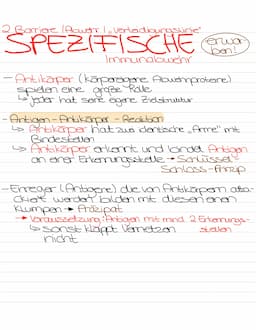 2 Barriere / Abwehr / „Verteidigungslinie"
SPEZIFISCHE
erworben!
Immunabwehr
- Antikörper (körpereigene Abwehrproteine)
spielen eine große Rolle
↳ jeder hat seine eigene Zielstruktur
- Antigen-Antikörper-Reaktion
↳ Antikörper hat zwei identische „Arme" mit
Bindestellen
↳ Antikörper erkennt und bindet Antigen
an einer Erkennungsstelle → Schlüssel-
Schloss-Prinzip
- Erreger (Antigene) die von Antikörpern atta-
ckiert werden, bilden mit diesen einen
Klumpen → Präzipat
→ Voraussetzung: Antigen mit mind. 2 Erkennungs-
stellen
↳ sonst klappt Vernetzen
nicht